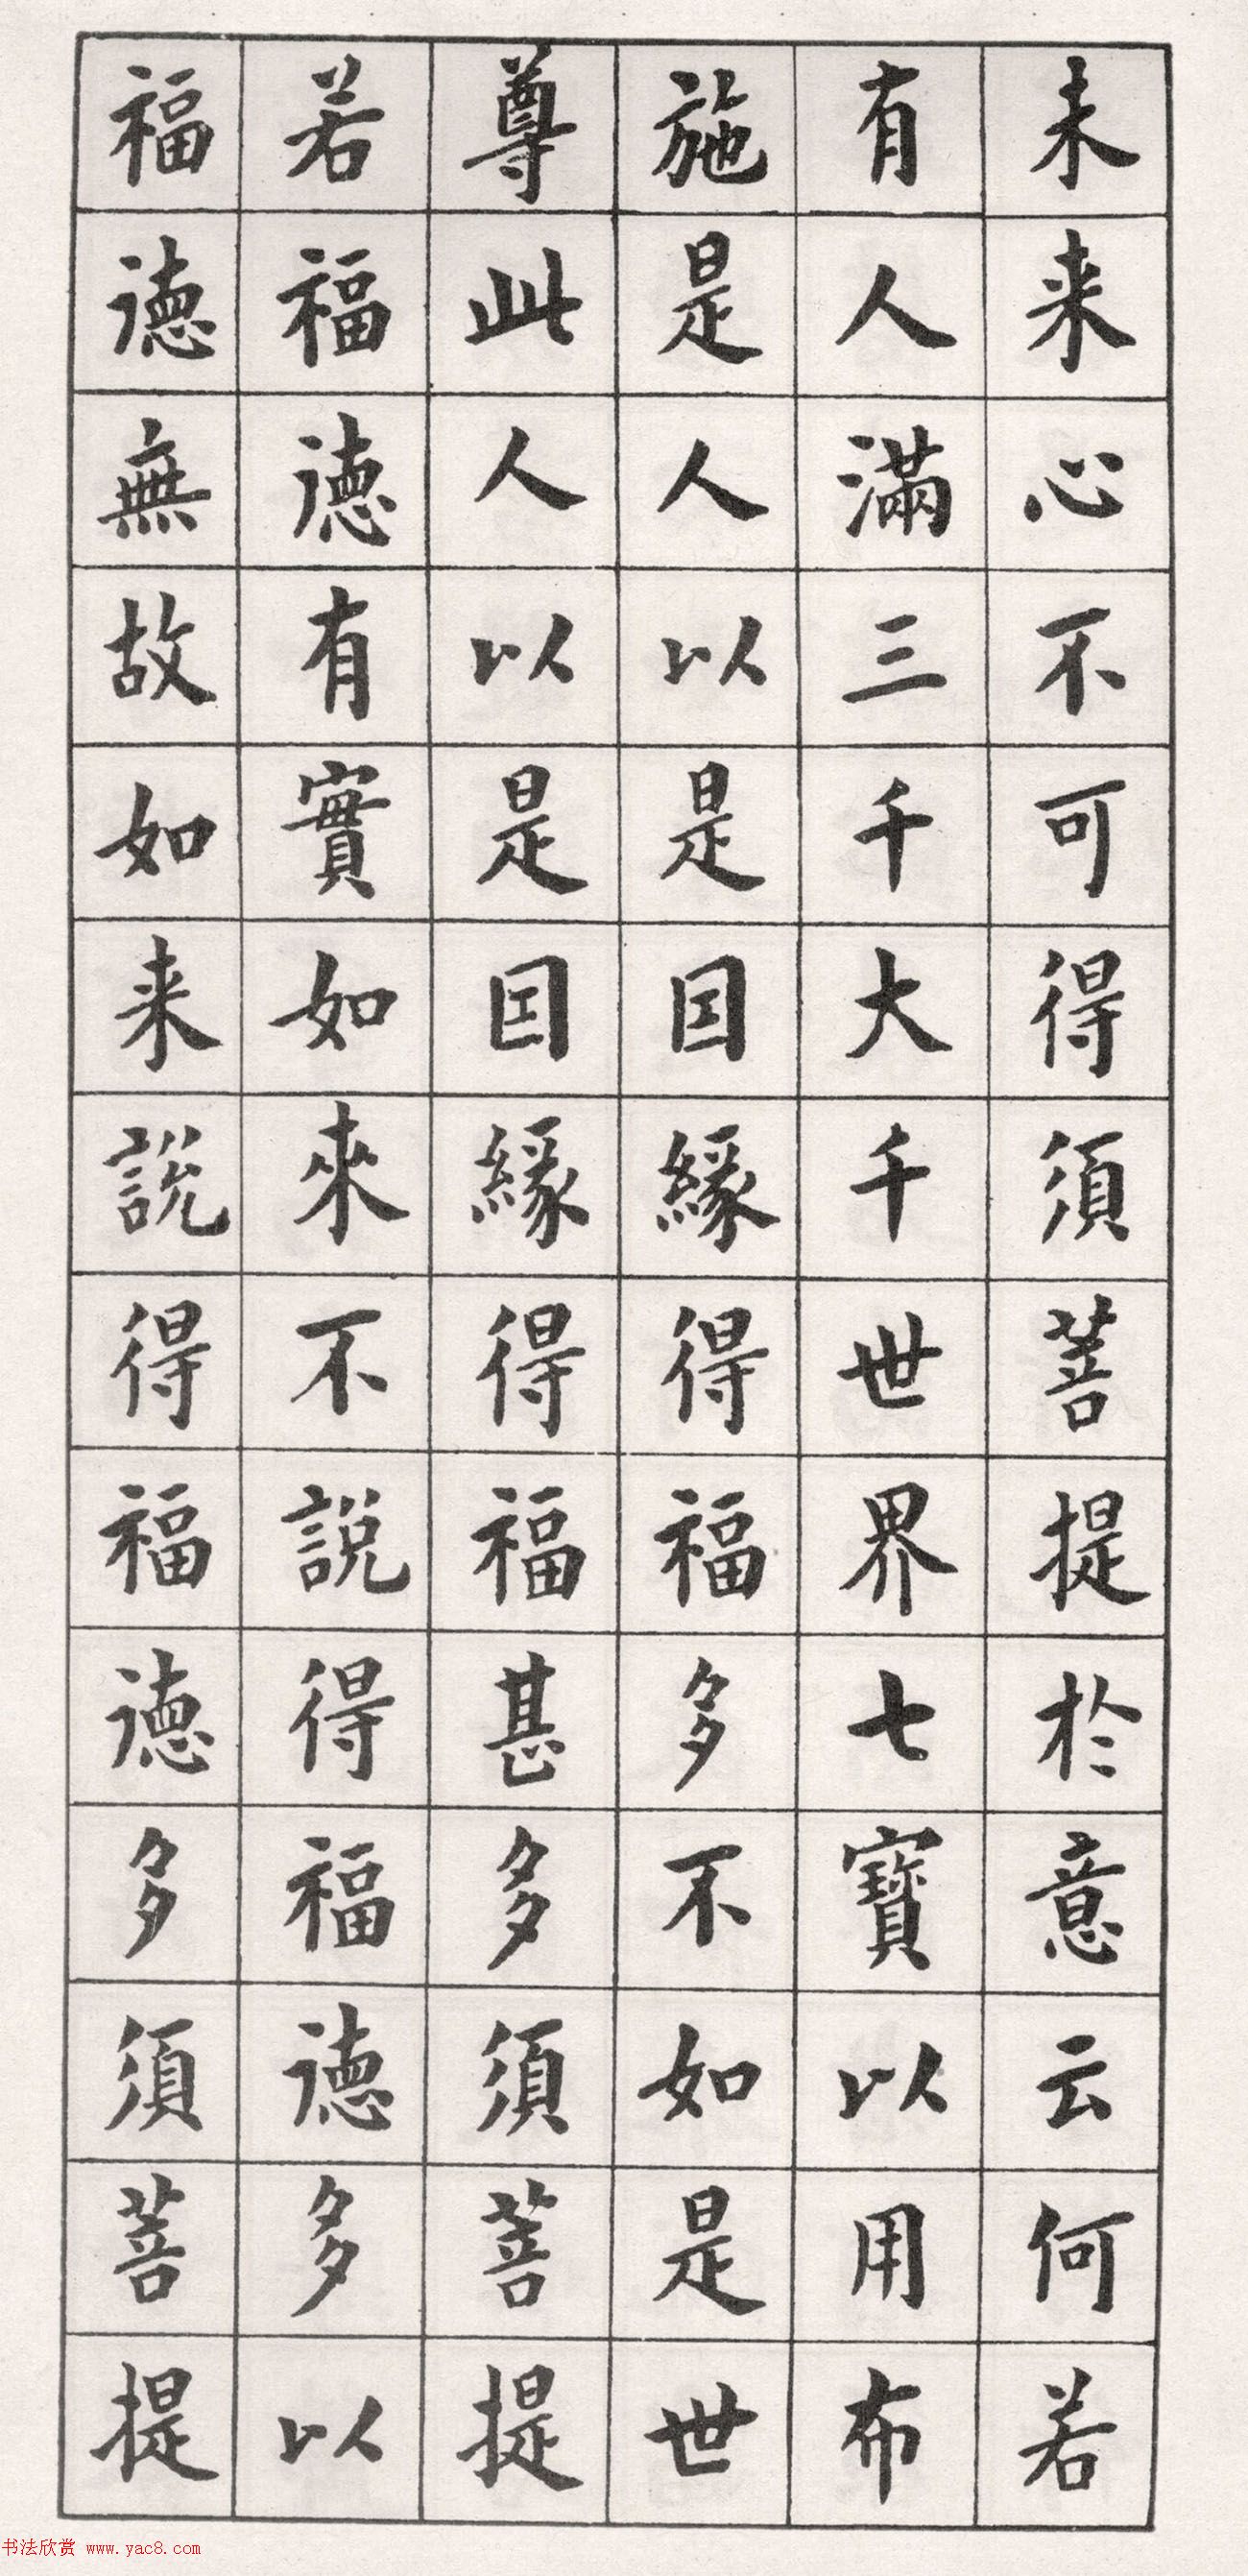 未来心不可得須菩提於意云何若
有人滿三千大千世界七寶以用布
施是人以是囙緣得福多不如是世
尊此人以是囙緣得福甚多須菩提
若福德有實如來不說得福德多以
福德無故如来說得福德多須菩提
书法欣赏 www.yac8.com